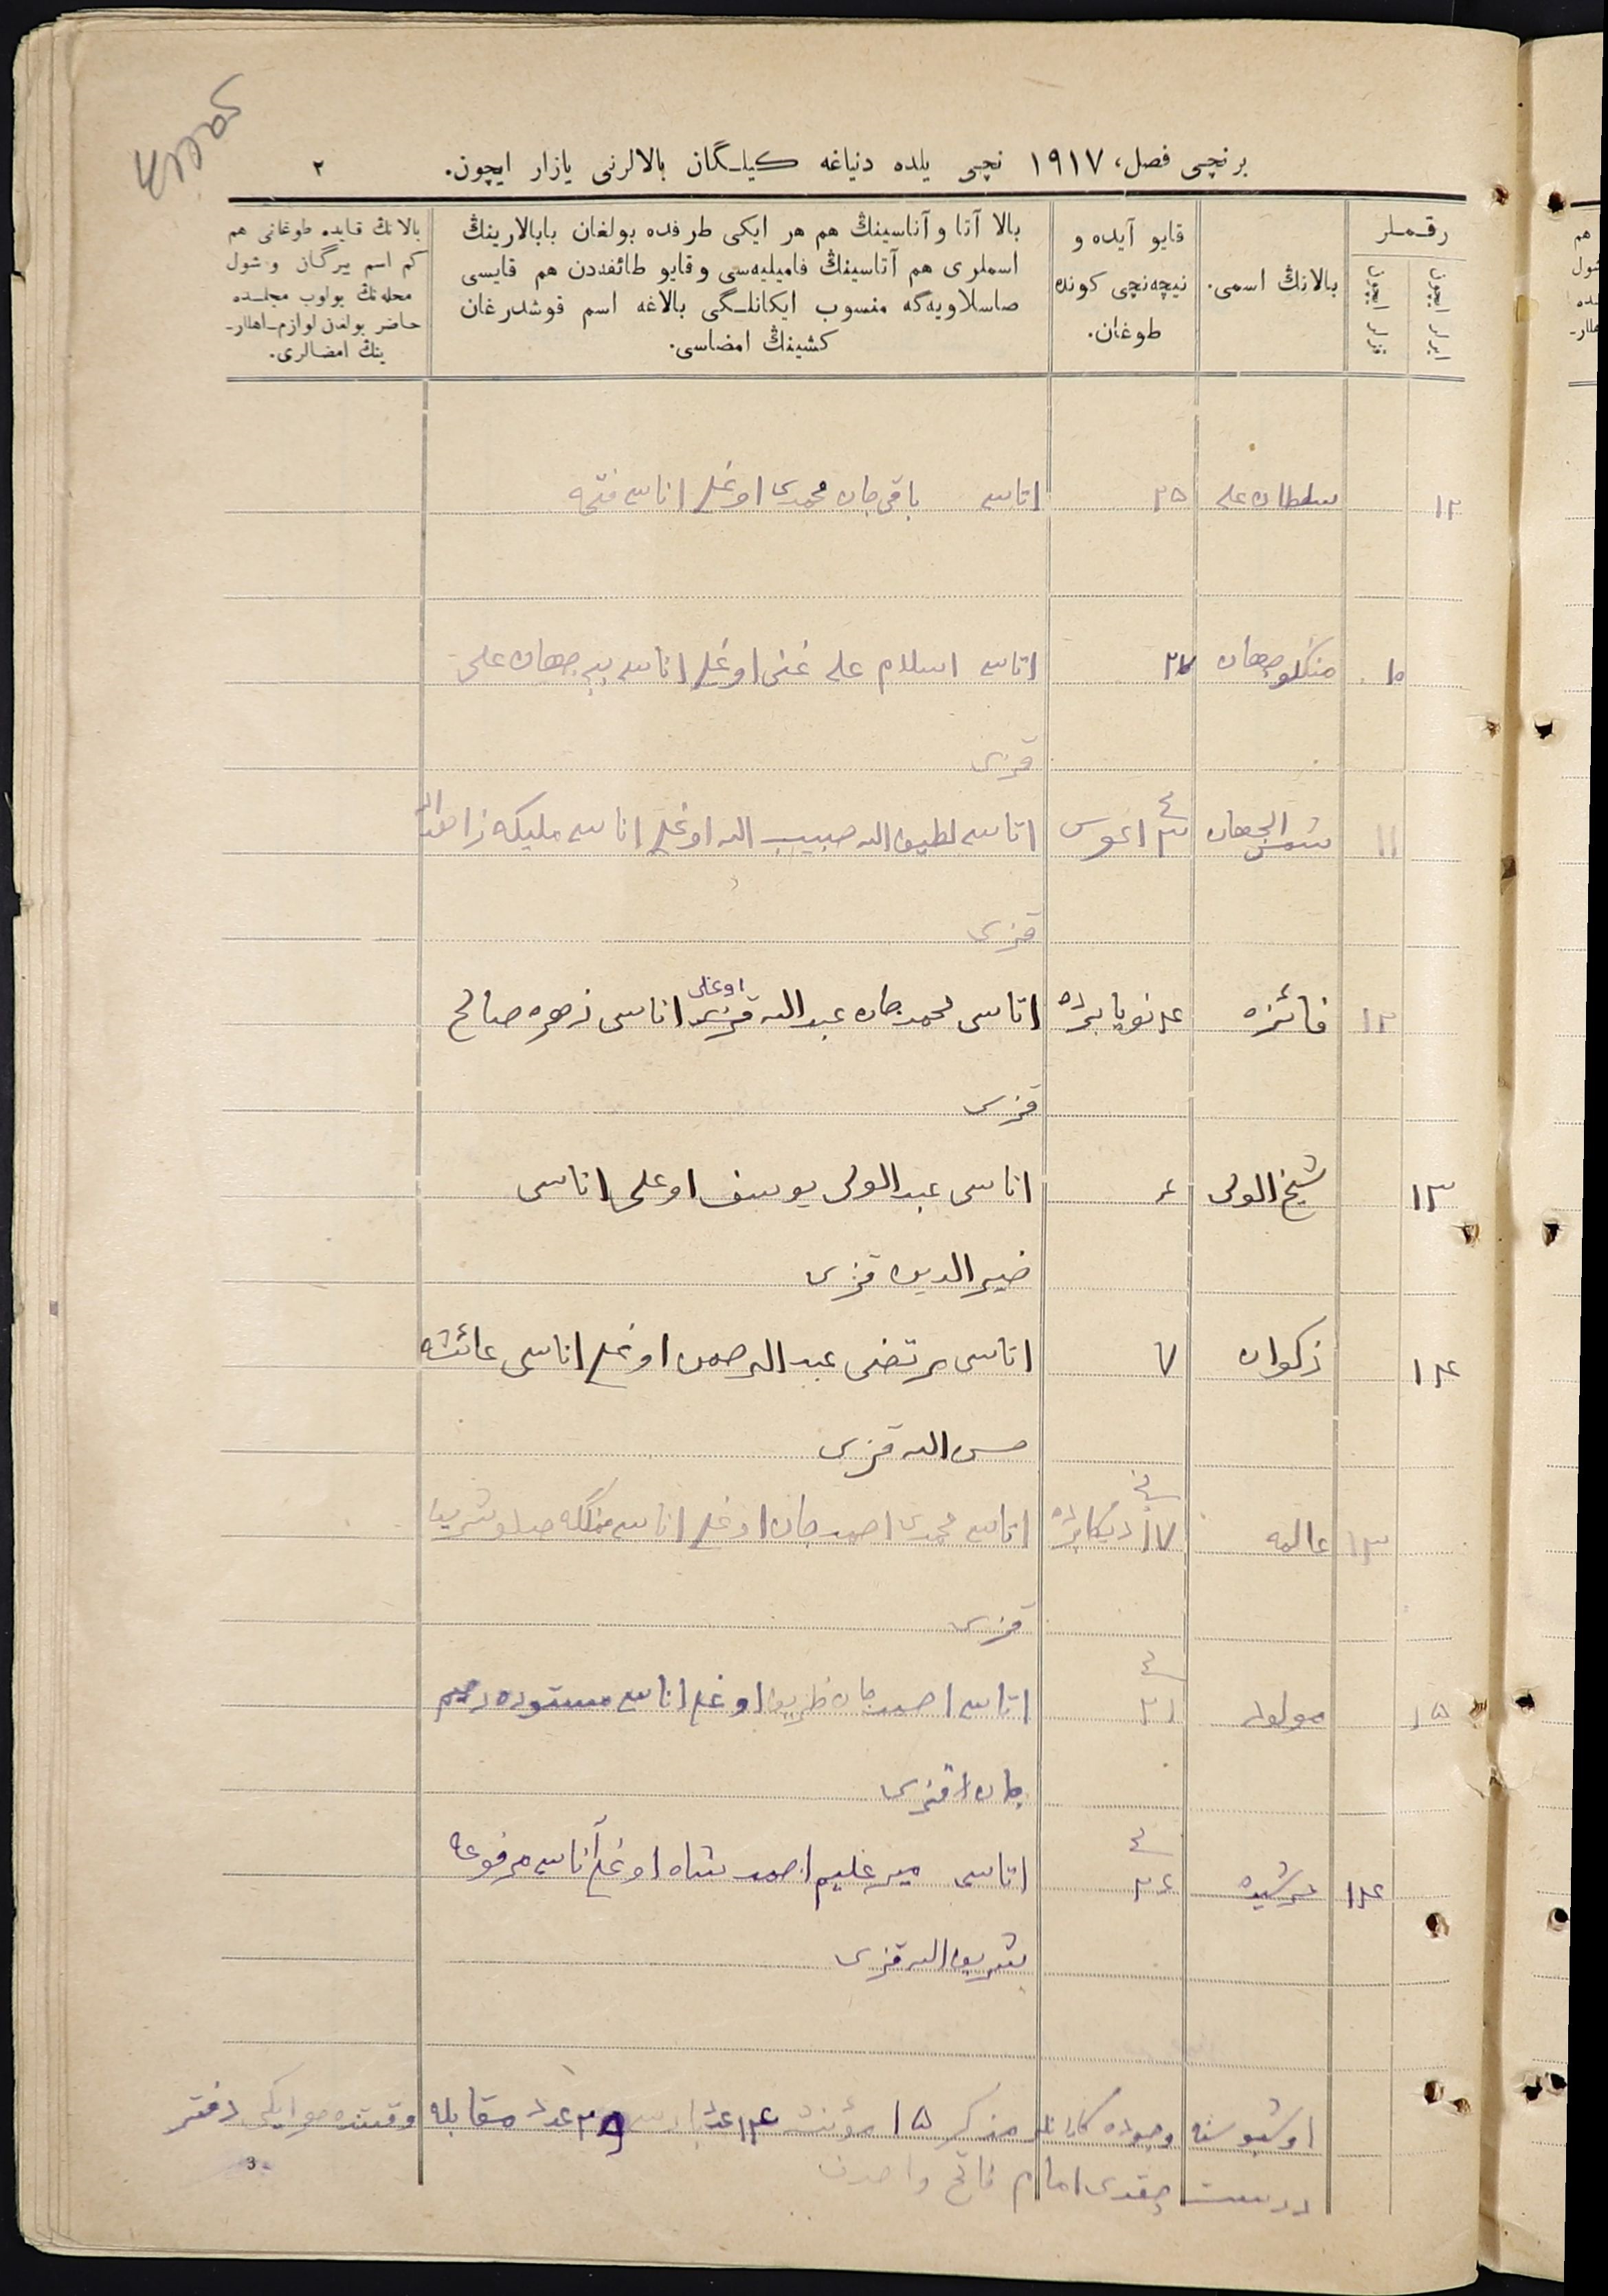 برنچی فصل، ١٩١٧ نچی یلده دنیاغه کیلـگان بالالرنی یازار ایچون.
٢
رقـمـلر
ایرلر ایچون
قزلر ایچون
بالانڭ اسمی.
قایو آیده و نیچه‌نچی کونده طوغان.
بالا آتا و آناسینڭ هم هر ایکی طرفده بولغان بابالارینڭ
اسملری هم آتاسینڭ فامیلیه‌سی و قایو طائفه‌دن هم قایسی
صاسلاویه‌گه منسوب ایکانلـگی بالاغه اسم قوشدرغان
کشینڭ امضاسی.
بالانڭ قایده طوغانی هم
کم اسم بیرگان و شول
محله‌نڭ بولوب مجلسده
حاضر بولغان لوازم‌ـ‌اهللر‌ـ
ینڭ امضالری.
١٢ سلطان علی ٢٥ اتاسی باقی جان محمدی اوغلی اناسی فتحیه
١٠ منکلوجهان ٢٧ اتاسی اسلام علی غنی اوغلی اناسی بی بی جهان علی
قزی
١١ شمس الجهان ٣ اغوس اتاسی لطیف الله حبیب الله اوغلی اناسی ملیکه
قزی
١٢ فائزه ٤ نویابرده اتاسی محمد جان عبد الله قزی اوغلی اناسی زهره صالح
قزی
١٣ شیخ الولی ٤ اتاسی عبد الولی یوسف اوغلی اناسی
خیر الدین قزی
١٤ ذکوان ٧ اتاسی مرتضی عبد الرحمن اوغلی اناسی عائشه
حسن الله قزی
١٣ عالمه ١٧ دیکابرده اتاسی محمدی احمد جان اوغلی اناسی شریف
قزی
١٥ مولود ٢١ اتاسی احمد جان ظریف اوغلی اناسی مستوره رحیم
جان قزی
١٤ مرشیده ٢٤ اتاسی میر علیم احمد شاه اوغلی اناسی مرفوعه
شریف الله قزی
اوشبو سنه وجوده کلانلر مذکر ١٥ مؤنث ١٤ عدد ٢٩ عدد مقابله وقتنده هر ایکی دفتر
درست چقدی امام فاتح واحدف
3